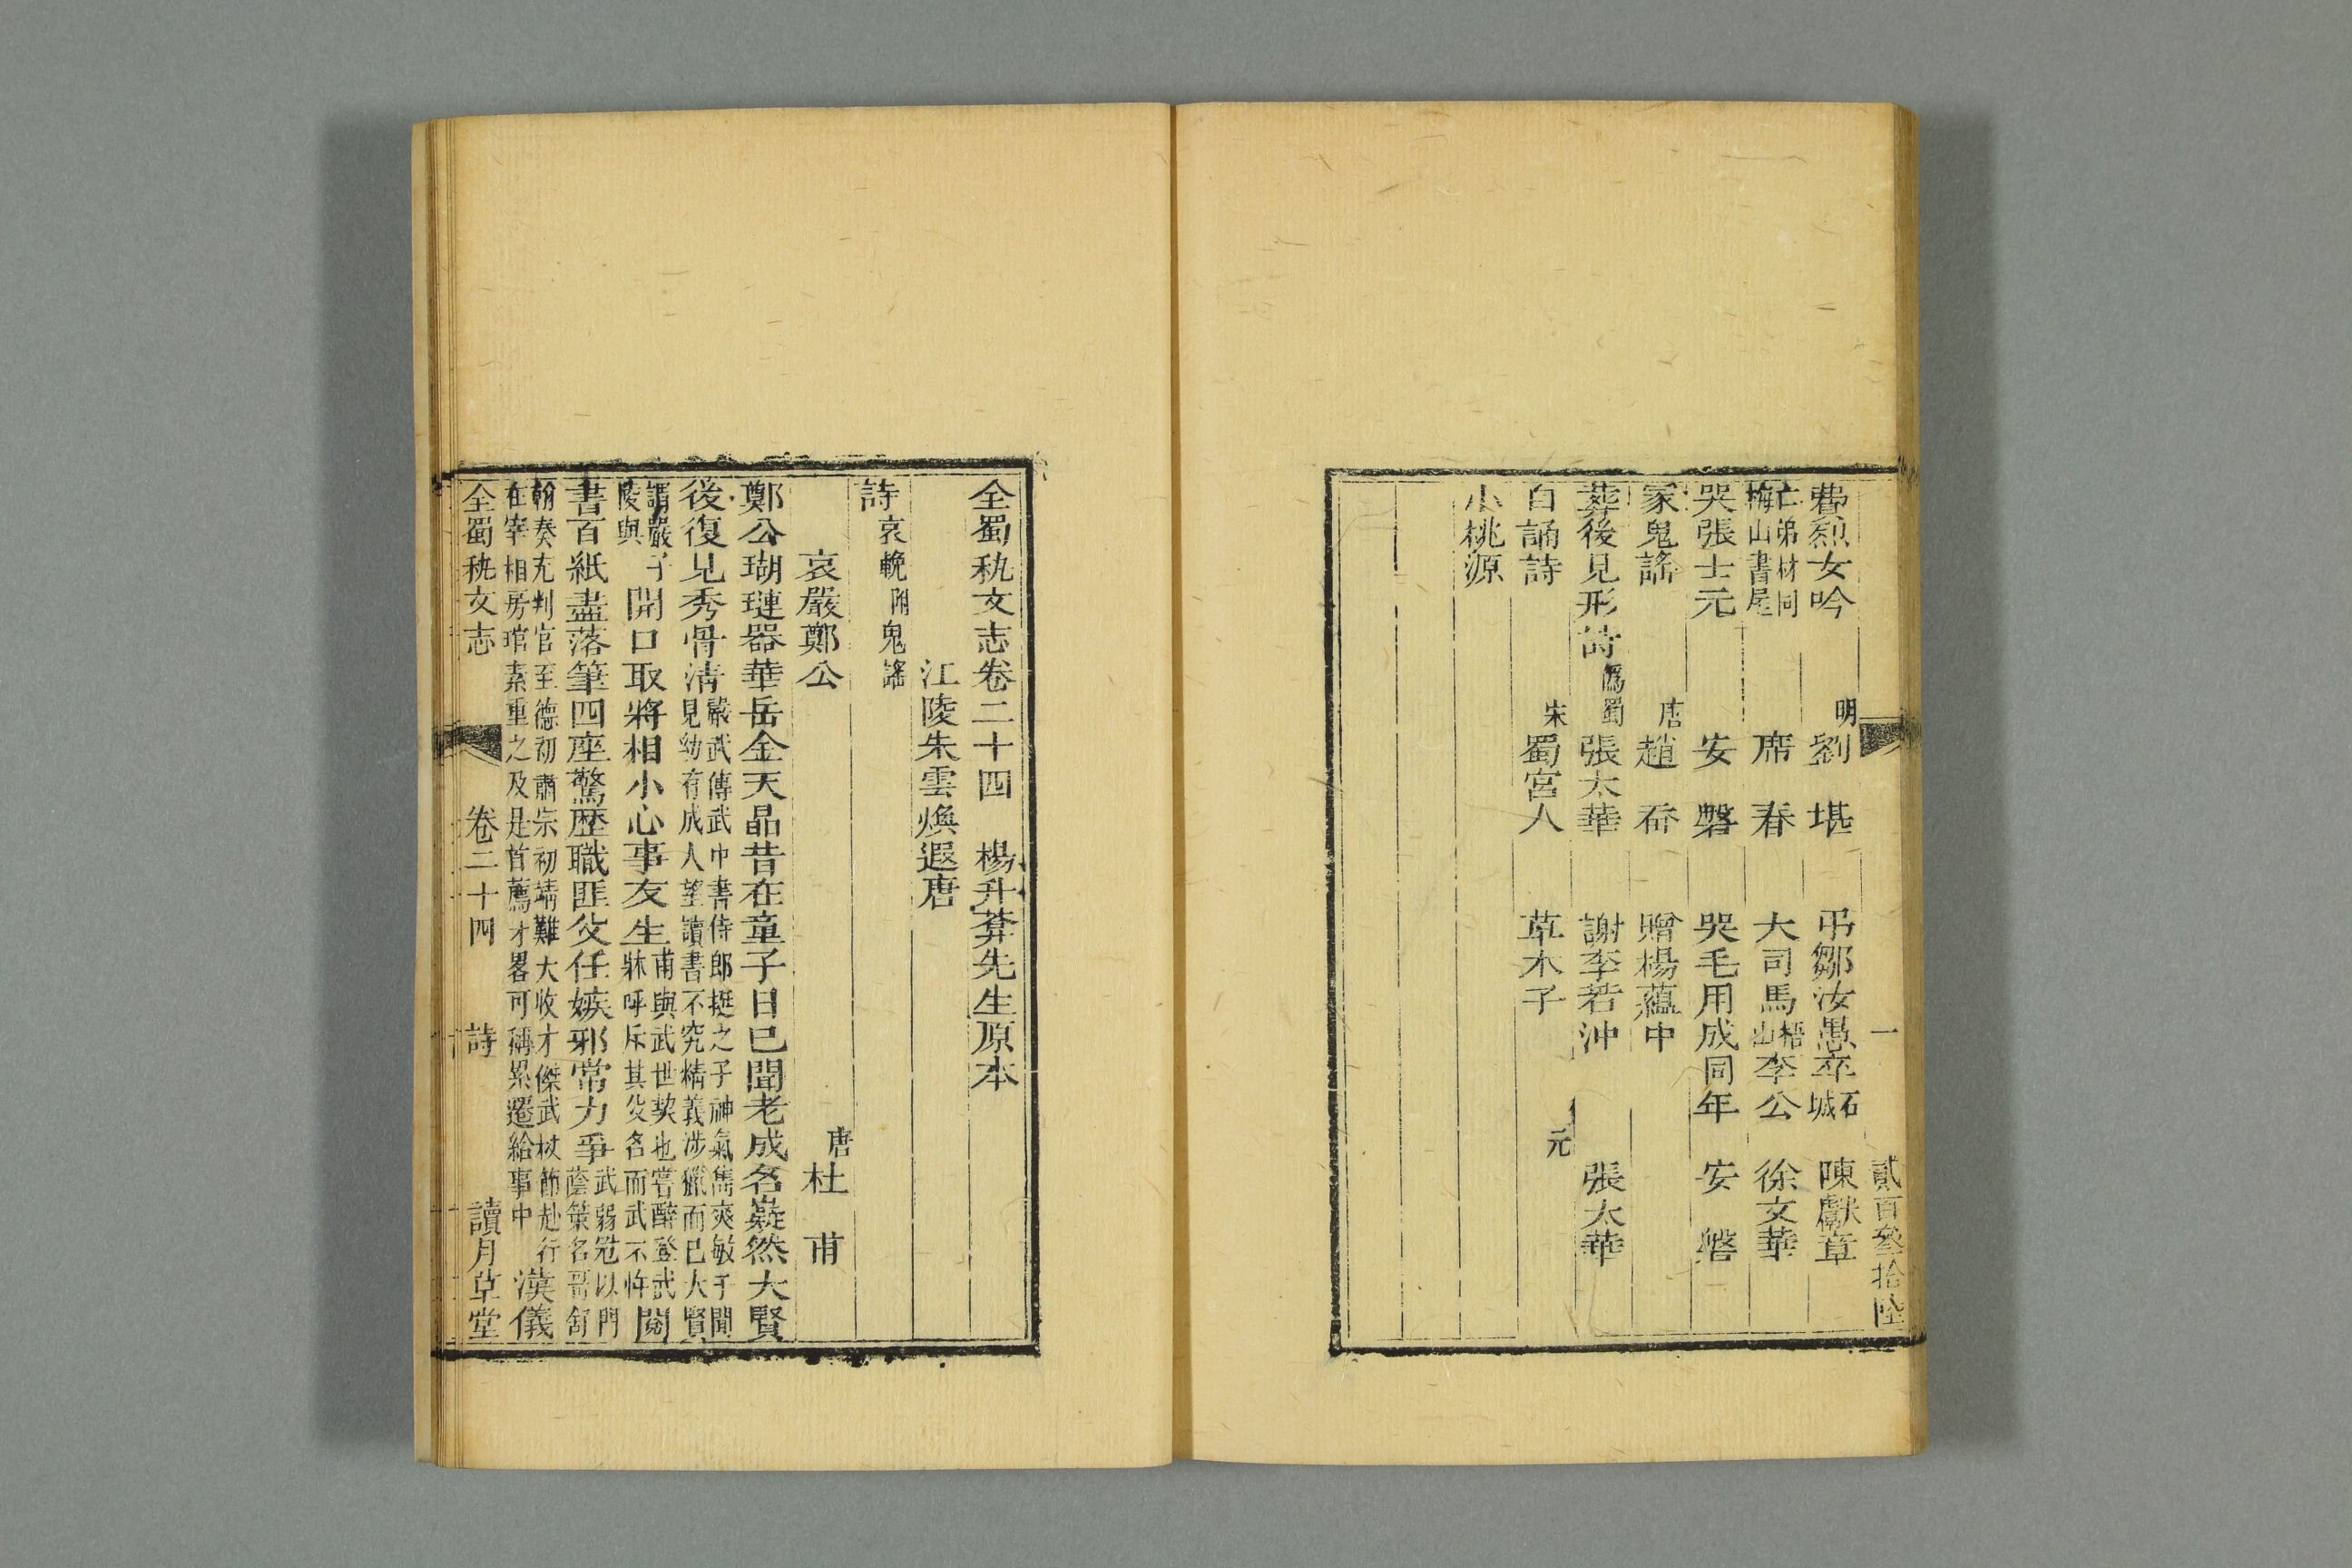 一　貳百叄拾陸
費烈女吟　明劉　堪　弔鄒汝愚卒石城　陳獻章
亡弟材同梅山書屋　席　春　大司馬梧山李公　徐文華
哭張士元　安　磐　哭毛用成同年　安　磐
冢鬼謠　唐趙　　贈楊蘊中
葬後見形詩爲蜀　張太華　謝李若沖　張太華
白誦詩　宋蜀宮人　草木子　元
小桃源
全蜀秇文志卷二十四　楊升菴先生原本
江陵朱雲煥遐唐
詩哀輓附鬼謠
哀嚴鄭公　唐杜　甫
鄭公瑚璉器華岳金天晶昔在童子日已聞老成名嶷然大賢
後復見秀骨清嚴武傳武中書侍郎挺之子神氣雋爽敏于聞見幼有成人望讀書不究精義涉獵而已大賢謂嚴子陵與
開口取將相小心事友生甫與武世契也嘗醉登武牀呼斥其父名而武不忤閱
書百紙盡落筆四座驚歷職匪父任嫉邪常力爭武弱冠以門蔭策名哥舒
翰奏充判官至德初肅宗初靖難大收才傑武杖節赴行在宰相房琯素重之及是首薦才畧可稱累遷給事中　漢儀
全蜀秇文志　卷二十四　詩　讀月草堂